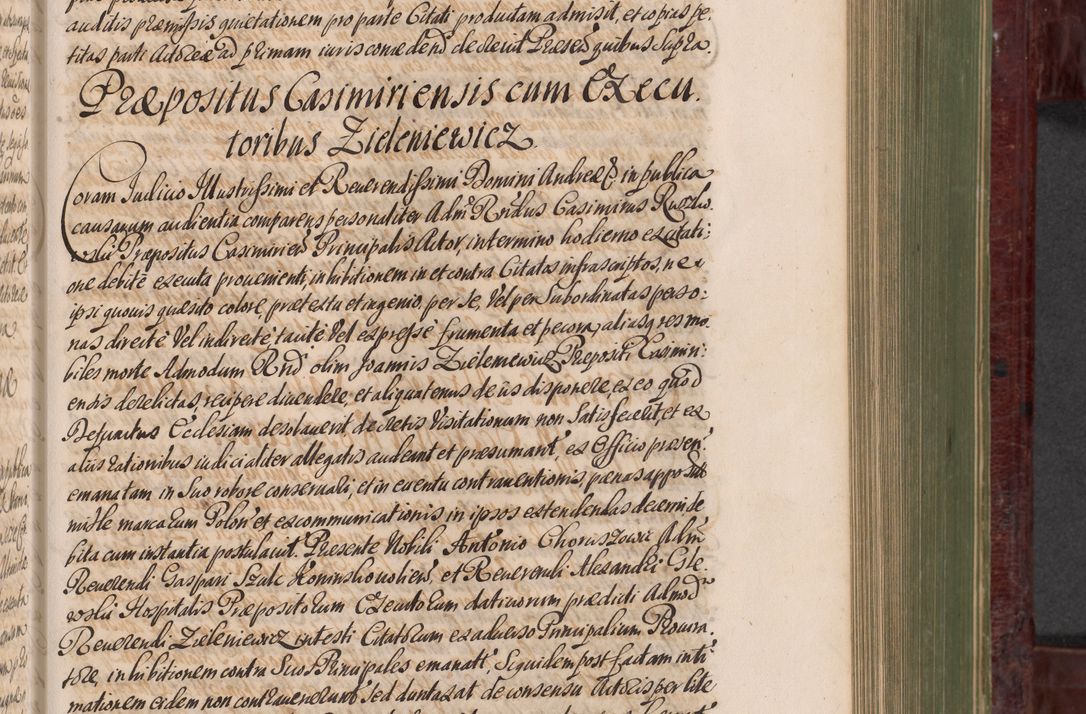 auditis præmissis quietationem pro parte Citati productam admisit, et copias pe.
titas parti Actoreæ ad primam iuris comedend decrevit Præsen quibus Supra.
Præpositus Casimiriensis cum Execu
toribus Zieleniewicz.
Coram Iudicio Illustrissimi et Reverendissimi Domini Andreæ &c in publica
causarum audientia comparens personaliter Adm Rndus Casimirus
Præpositus Casimirien Principalis Actor, in termino hodierno ex citati:
one debitè executa provenienti, inhibitionem in et contra Citatos infrascriptos, ne
ipsi quovis quæsito colore, prætextu et ingenio, per se, Vel per Subordinatas perso:
nas directè Vel indirectè, tacitè Vel expressè frumenta et pecora, aliasq res mo:
biles morte Admodum Rnd olim Joannis Zieleniewicz Præpositi Casimiri:
ensis derelictas, recipere divendere, et aliquatenus de iis disponere, ex eo quod
Defunctus Ecclesiam desolaverit decretis Visitationum non Satisfecerit, et ex
aliis rationibus iudicialiter allegatis audeant et præsumant, ex Officio præsen
emanatam in Suo robore conservari, et in eventu contraventionis pœnas appo
mille marcarum Polon et excommunicationis in ipsos extendendas decerni de
bita cum instantia postulavit. Præsente Nobili Antonio Adm
Reverendi Gaspari et Reverendi Alexandri
Hospitalis Præpositorum Executorum dativorum prædicti Admod
Reverendi Zieleniewicz intesti Citatorum ex adverso Principalium Procura.
tore, inhibitionem contra Suos Principales emanat Siquidem post factam inti
mationem eidem non contravenerunt, sed duntaxat de consensu Actoris per lite